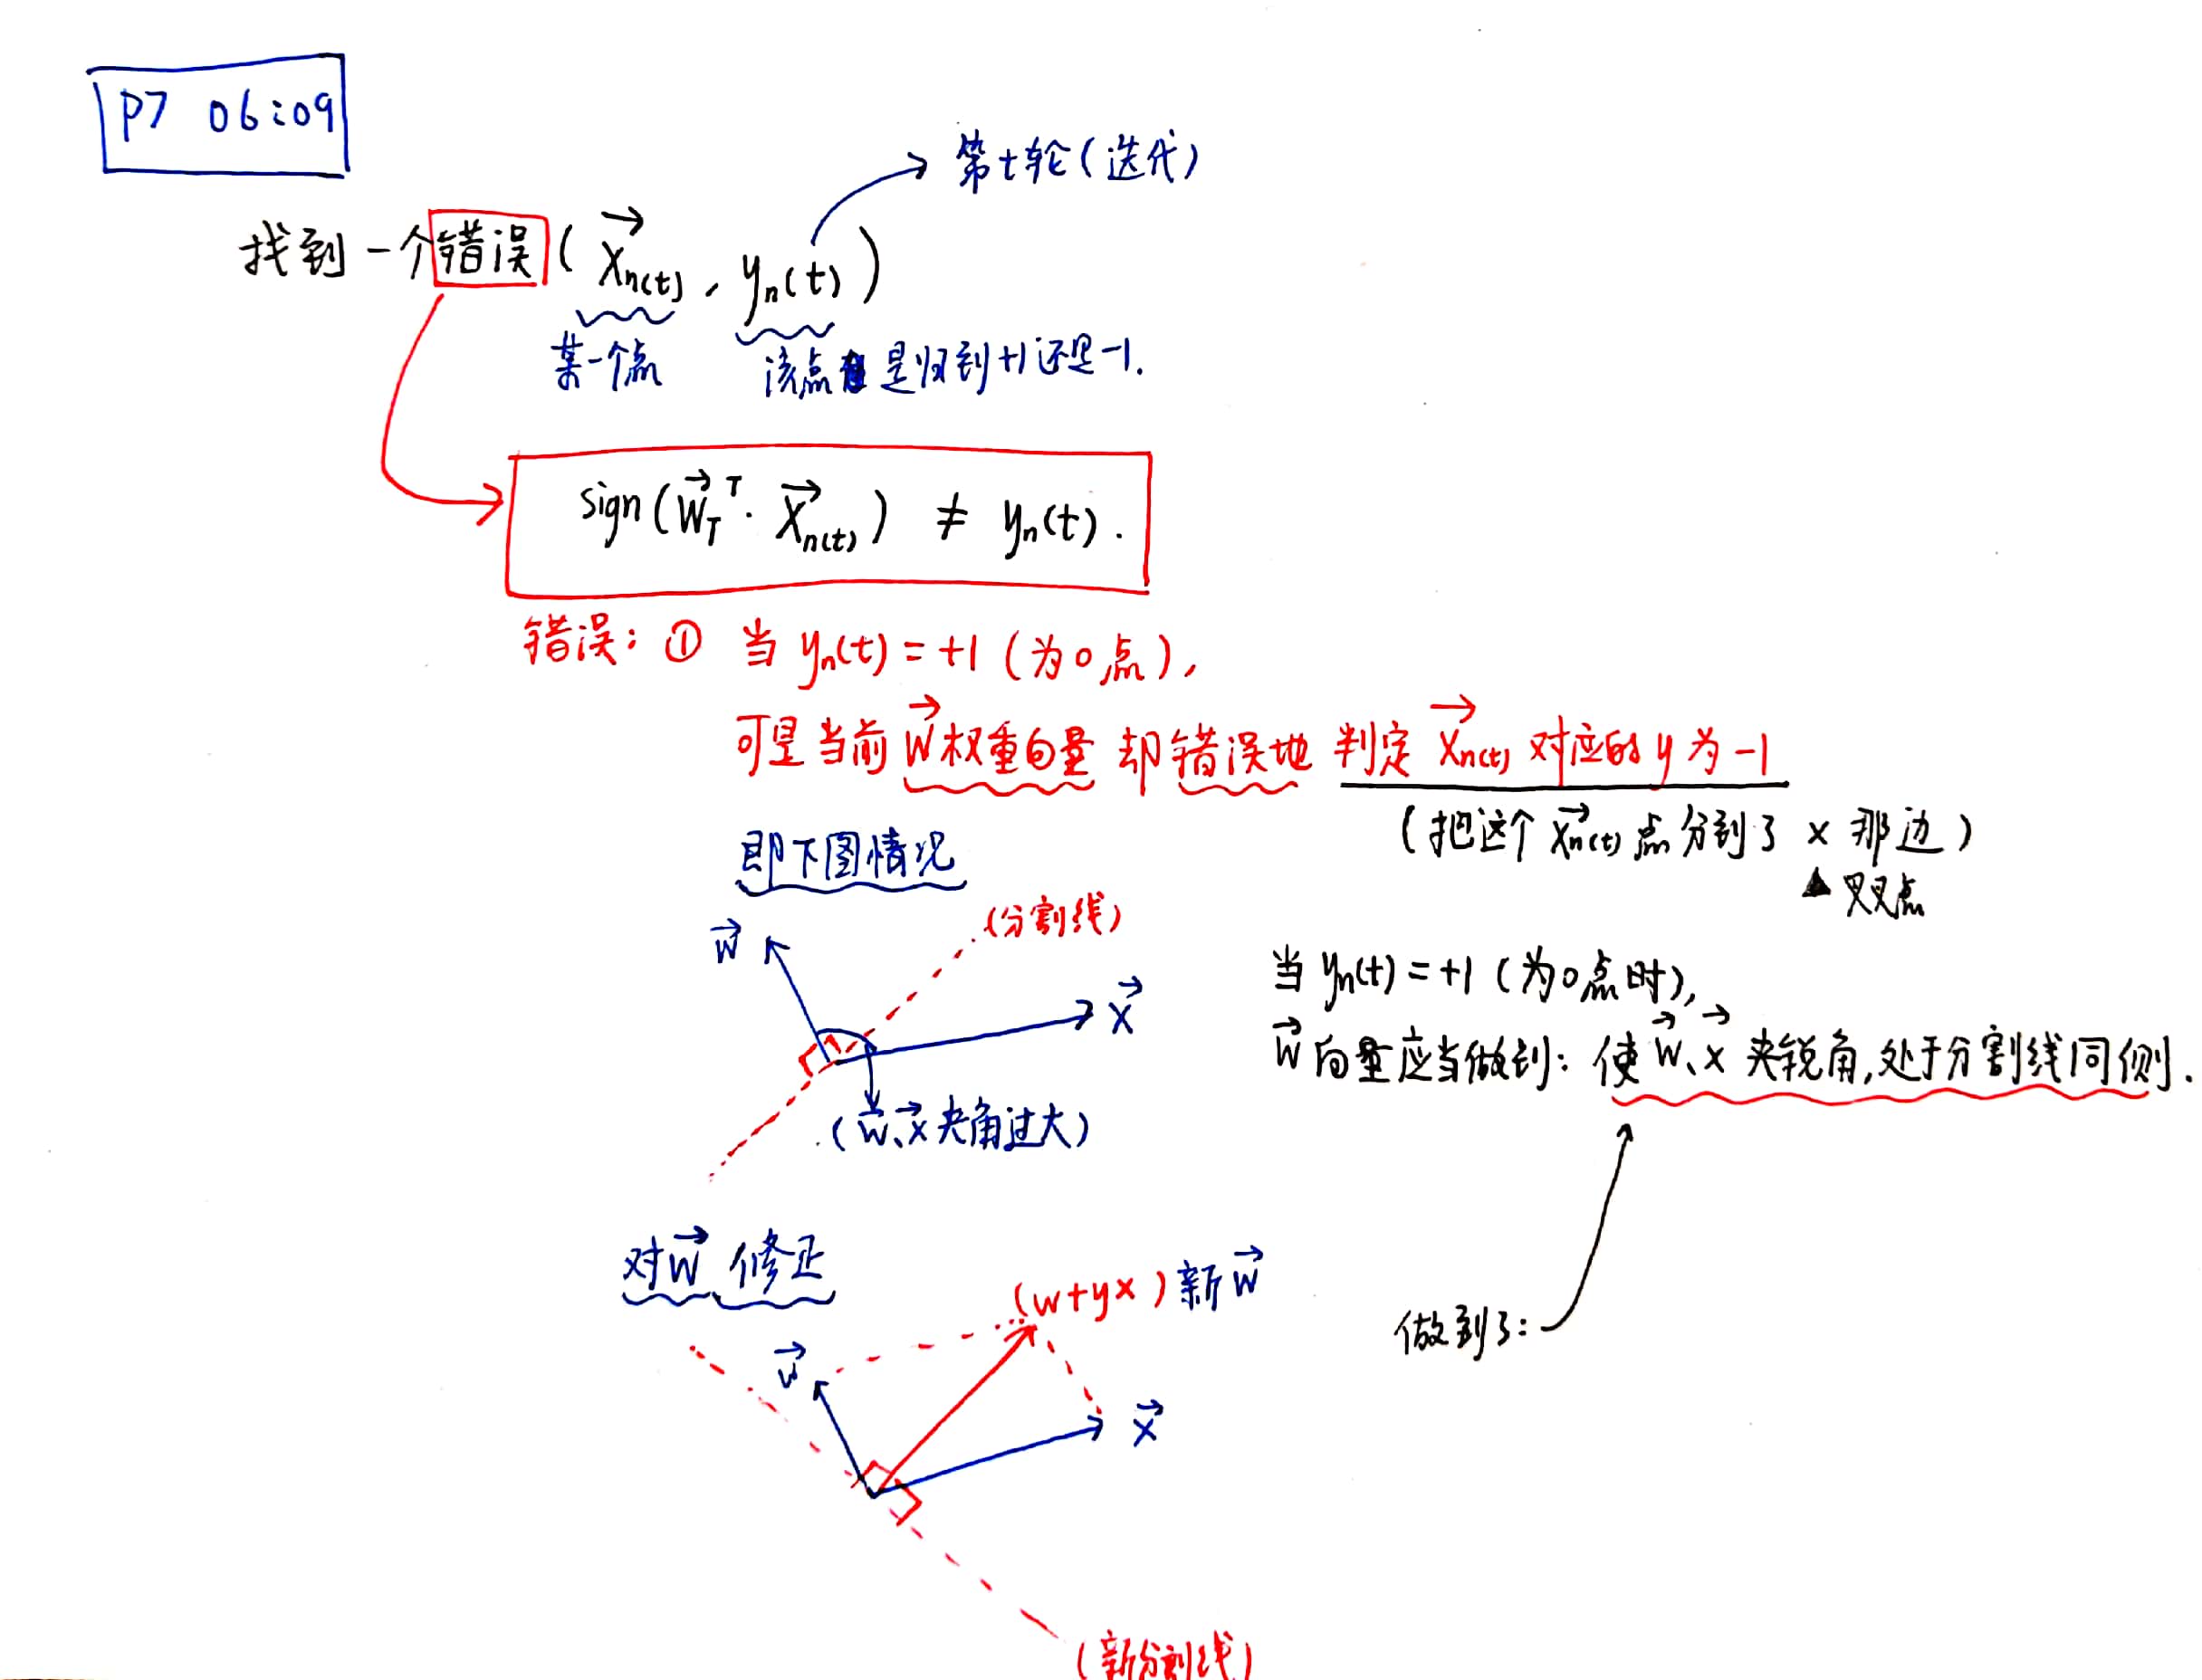 P7 06:09
第t轮(迭代)
找到一个错误(x⃗n(t), yn(t))
某一个点
该点是归到+1还是-1.
sign(W⃗T^T · X⃗n(t)) ≠ yn(t).
错误: ① 当 yn(t) = +1 (为o点),
可是当前 W⃗ 权重向量 却错误地 判定 X⃗n(t) 对应的 y 为 -1
(把这个 X⃗n(t) 点分到了 x 那边)
▲ 叉叉点
即下图情况
(分割线)
W⃗
X⃗
(W⃗、X⃗ 夹角过大)
当 yn(t) = +1 (为o点时),
W⃗ 向量应当做到: 使 W⃗、X⃗ 夹锐角,处于分割线同侧.
做到了:
对W⃗ 修正
(w+yx) 新W⃗
W⃗
X⃗
(新分割线)